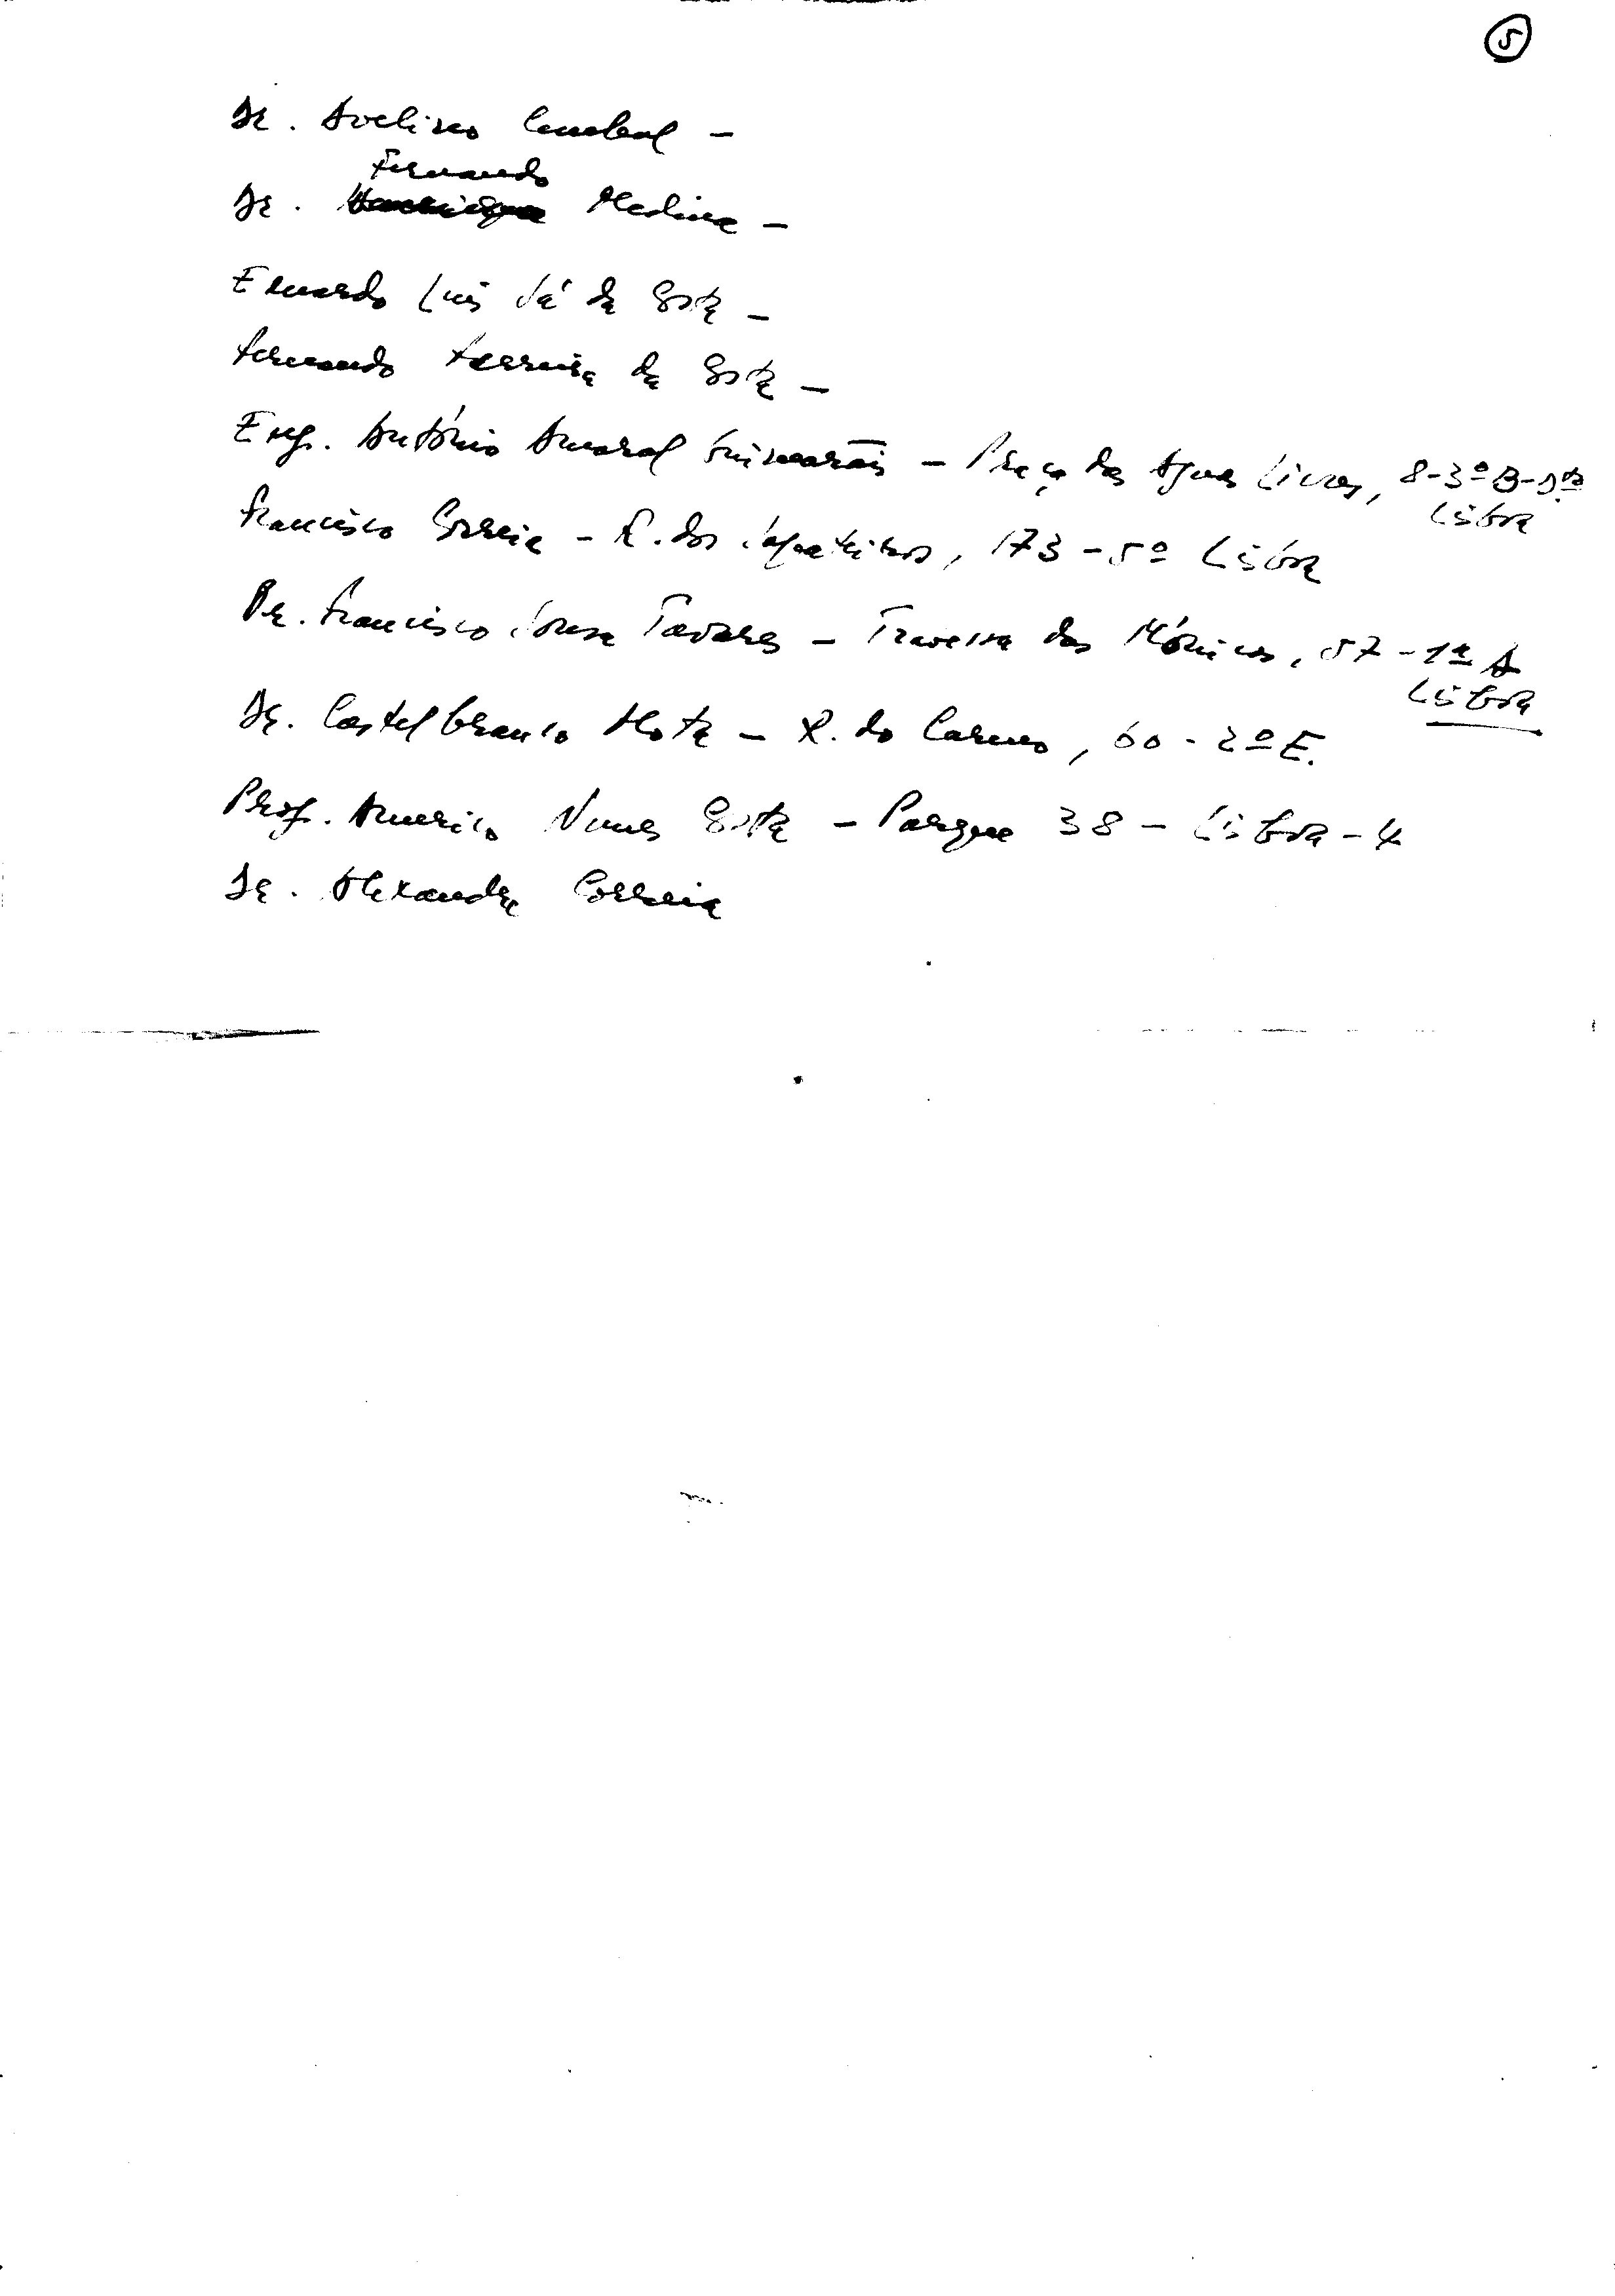 5
Dr. Avelino Cunhal -
Fernando
Dr. Medina -
Eduardo Luís Sá da Costa -
Fernando Ferreira da Costa -
Eng. António Amaral Guimarães - Praça das Aguas Livres, 8-3º B-Dtº
Lisboa
Francisco Correia - R. dos Sapateiros, 173 - 5º Lisboa
Dr. Francisco Sousa Tavares - Travessa das Mónicas, 57 - 1º A
Lisboa
Dr. Castelbranco Mota - R. do Carmo, 60 - 2º E.
Prof. Americo Nunes Costa - Parque 38 - Lisboa - 4
Dr. Alexandre Correia